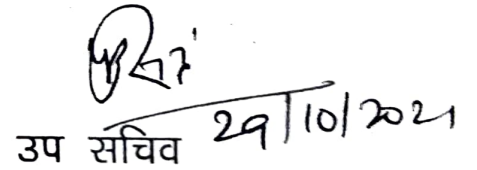 उप सचिव 29/10/2021